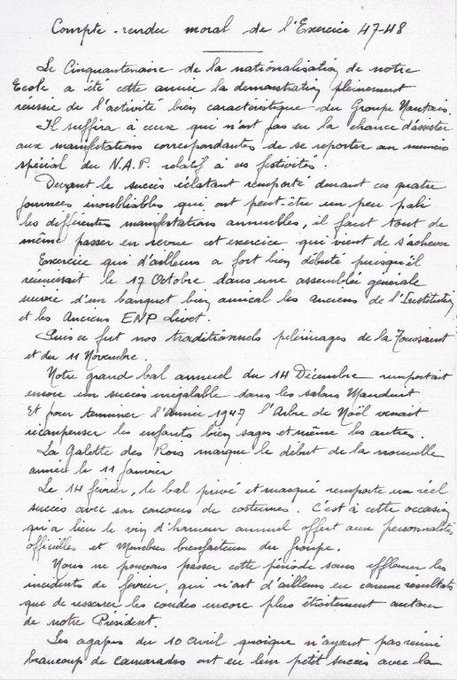 Compte-rendu moral de l'Exercice 47-48
Le Cinquantenaire de la nationalisation de notre
Ecole a été cette année la démonstration pleinement
réussie de l'activité bien caractéristique du Groupe Nantais.
Il suffira à ceux qui n'ont pas eu la chance d'assister
aux manifestations correspondantes de se reporter au numéro
spécial du N.A.P. relatif à ces festivités.
Devant le succès éclatant remporté durant ces quatre
journées inoubliables qui ont peut-être un peu pali
les différentes manifestations annuelles, il faut tout de
même passer en revue cet exercice qui vient de s'achever
Exercice qui d'ailleurs a fort bien débuté puisqu'il
réunissait le 17 Octobre dans une assemblée générale
suivie d'un banquet bien amical les anciens de l'Institution
et les Anciens ENP Livet.
Puis ce fut nos traditionnels pélerinages de la Toussaint
et du 11 Novembre.
Notre grand bal annuel du 14 Décembre remportait
encore un succès inégalable dans les salons Mauduit
Et pour terminer l'année 1947 l'Arbre de Noël venait
récompenser les enfants bien sages et même les autres.
La Galette des Rois marque le début de la nouvelle
année le 11 janvier
Le 14 février, le bal privé et masqué remporte un réel
succès avec son concours de costumes. C'est à cette occasion
qu'a lieu le vin d'honneur annuel offert aux personnalités
officielles et Membres bienfaiteurs du groupe.
Nous ne pouvons passer cette période sans effleurer les
incidents de février, qui n'ont d'ailleurs eu comme résultats
que de resserrer les coudes encore plus étroitement autour
de notre Président.
Les agapes du 10 Avril quoique n'ayant pas réuni
beaucoup de camarades ont eu leur petit succès avec la